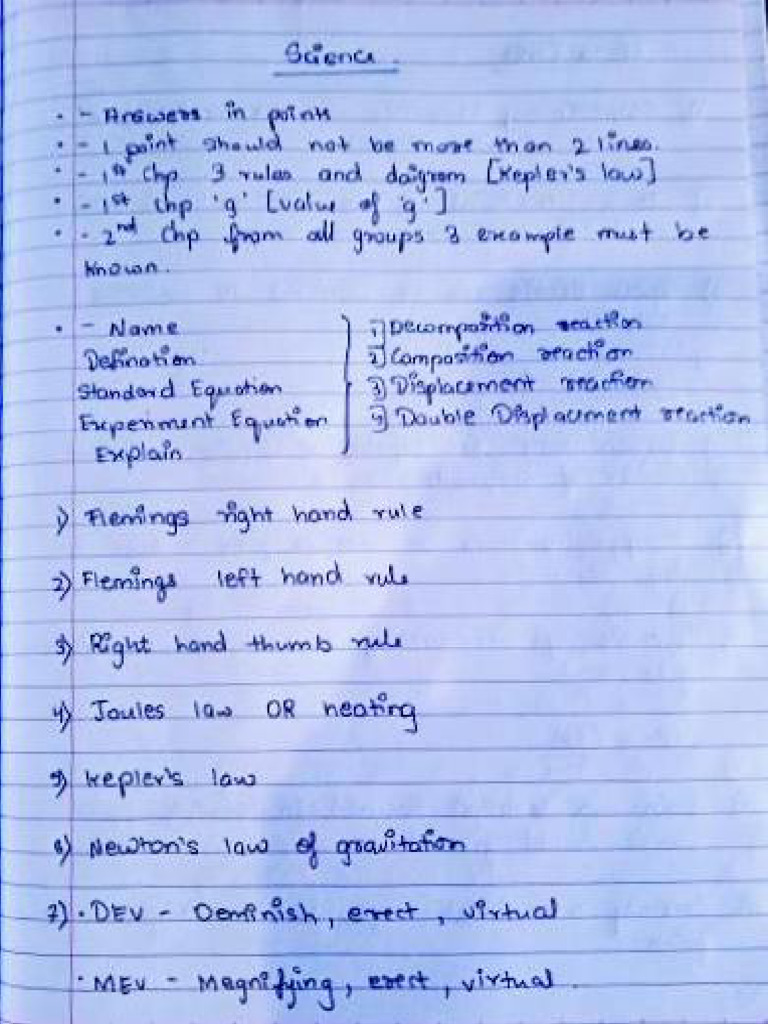 Science.
· - Answers in points
· - 1 point should not be more than 2 lines.
· - 1st Chp 3 rules and daigram [Kepler's law]
· - 1st Chp 'g' [value of 'g']
· - 2nd Chp from all groups 3 example must be
known.
· - Name
Defination
Standard Equation
Experiment Equation
Explain
1) Decomposition reaction
2) Composition reaction
3) Displacement reaction
4) Double Displacement reaction
1) Flemings right hand rule
2) Flemings left hand rule
3) Right hand thumb rule
4) Joules law OR heating
5) Kepler's law
6) Newton's law of gravitation
7) · DEV - Deminish, erect, virtual
· MEV - Magnifying, erect, virtual.